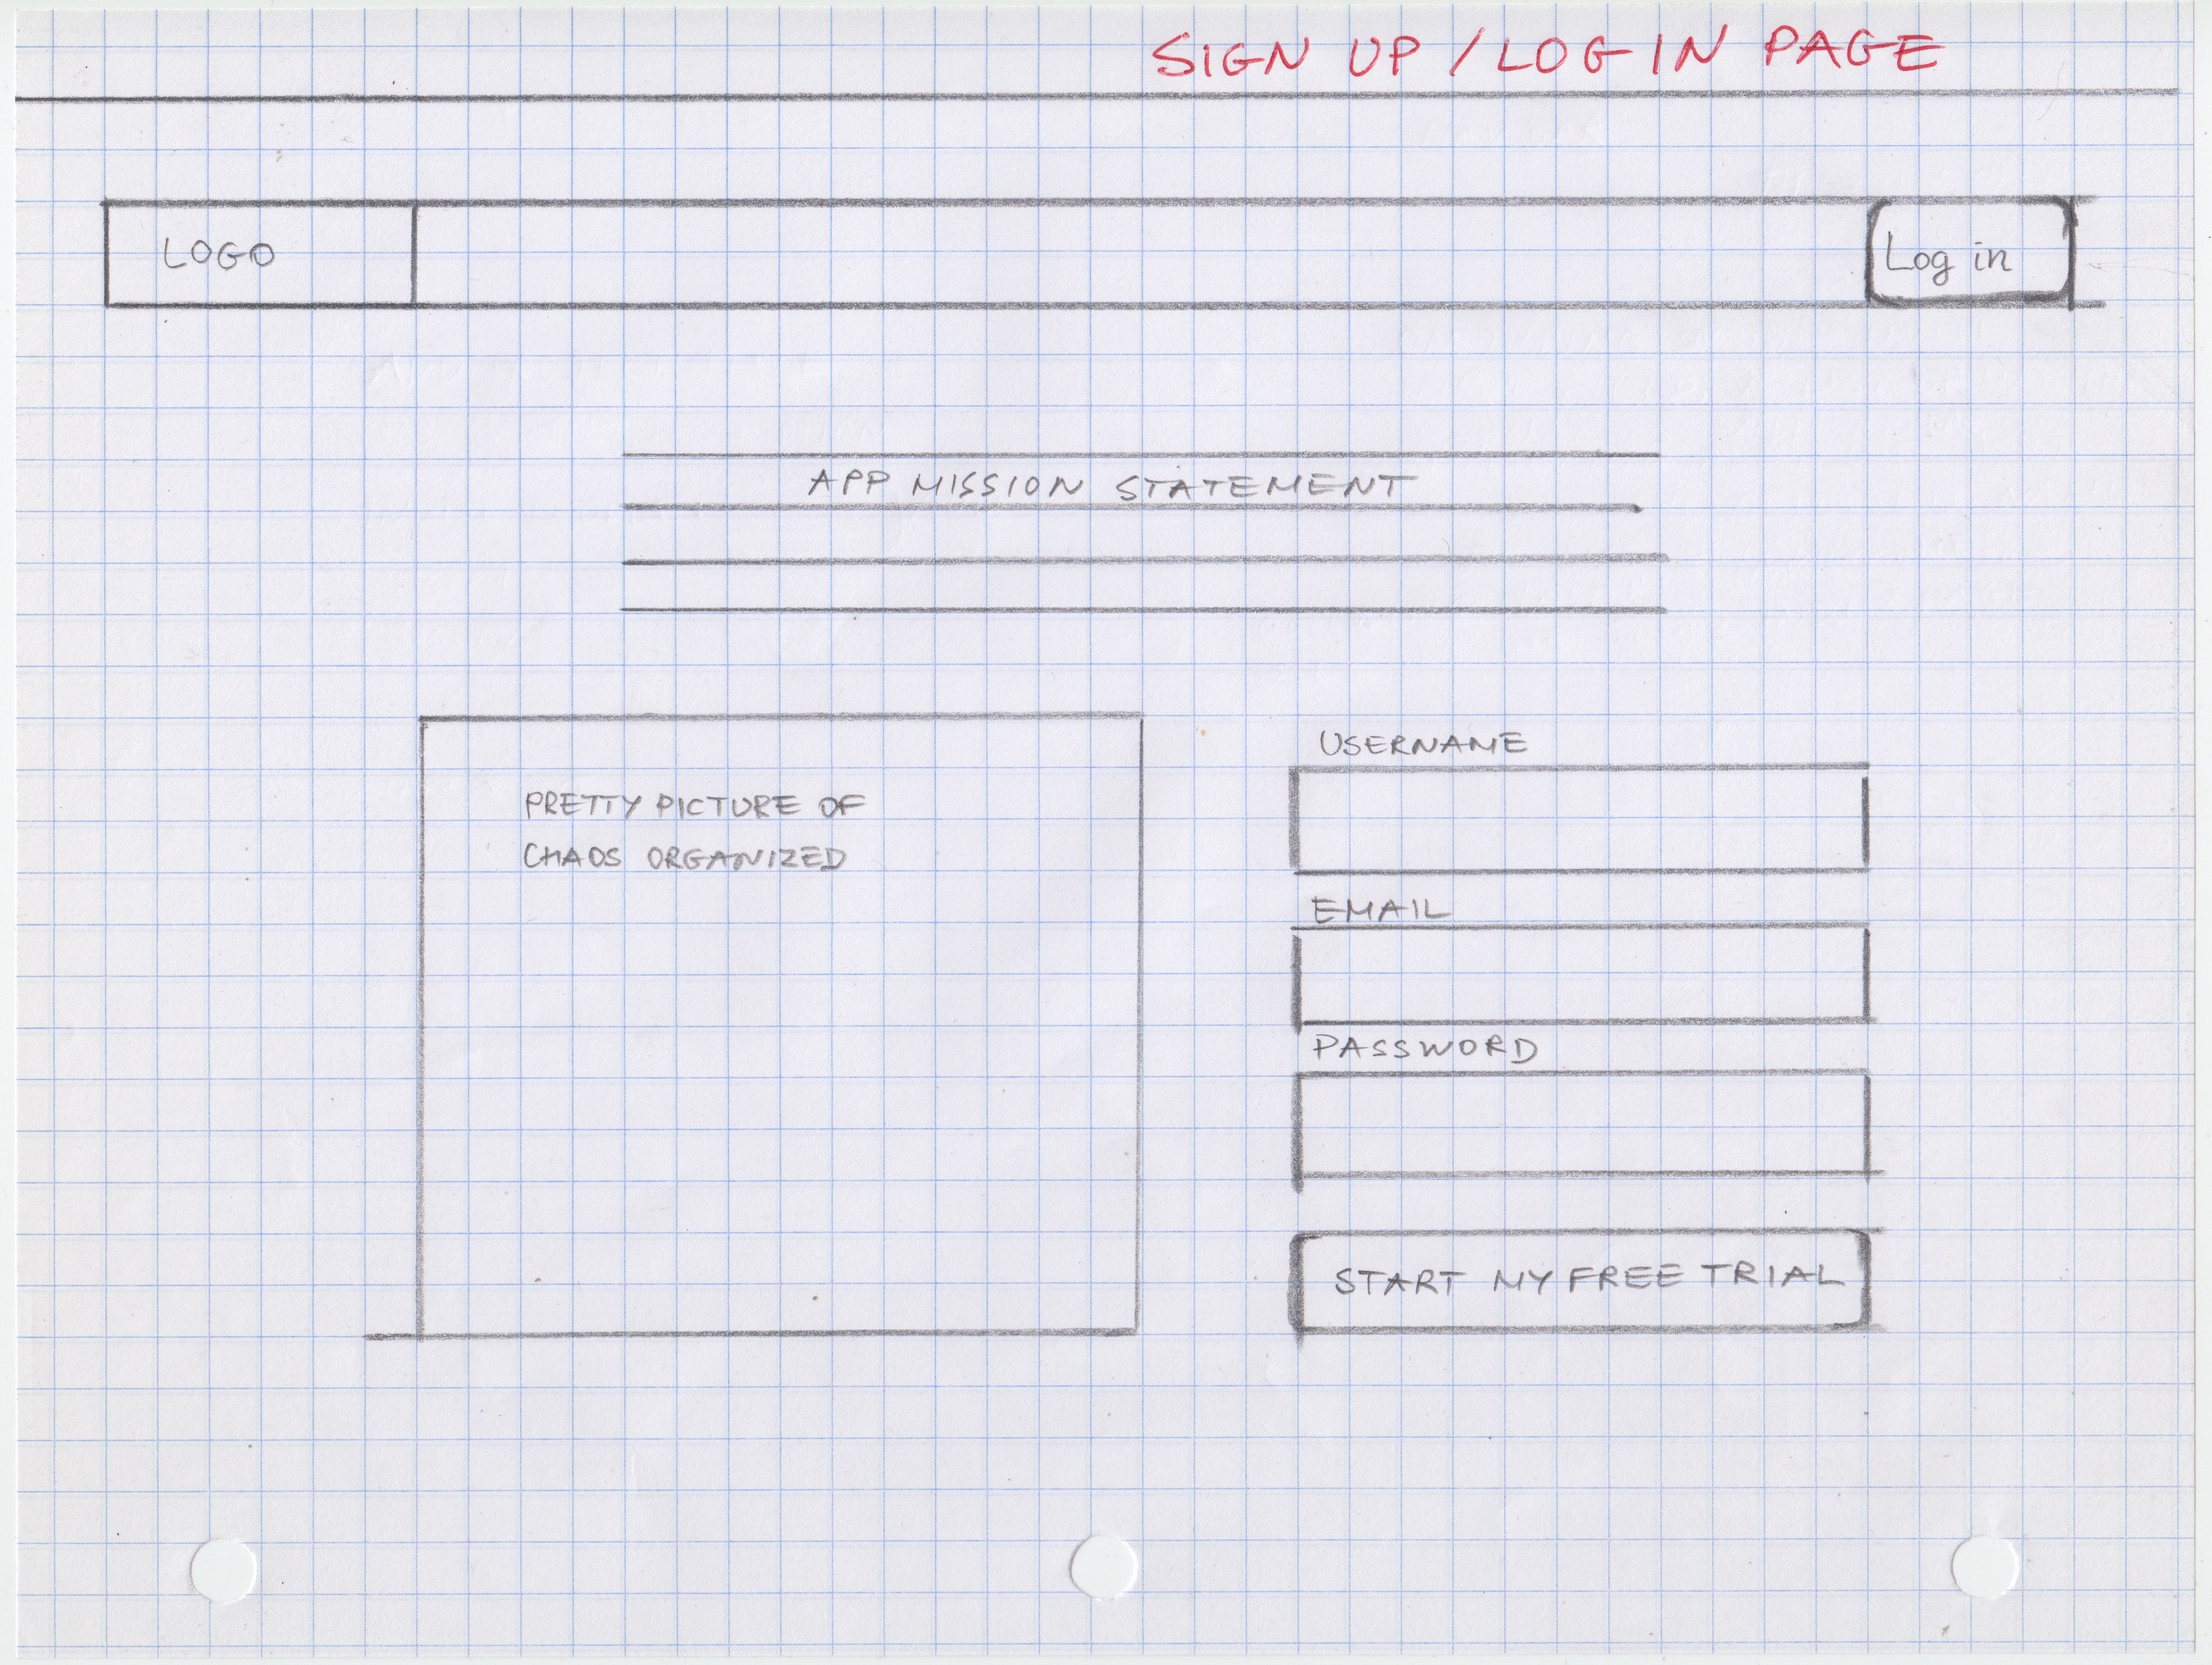 SIGN UP / LOG IN PAGE
LOGO
Log in
APP MISSION STATEMENT
PRETTY PICTURE OF
CHAOS ORGANIZED
USERNAME
EMAIL
PASSWORD
START MY FREE TRIAL